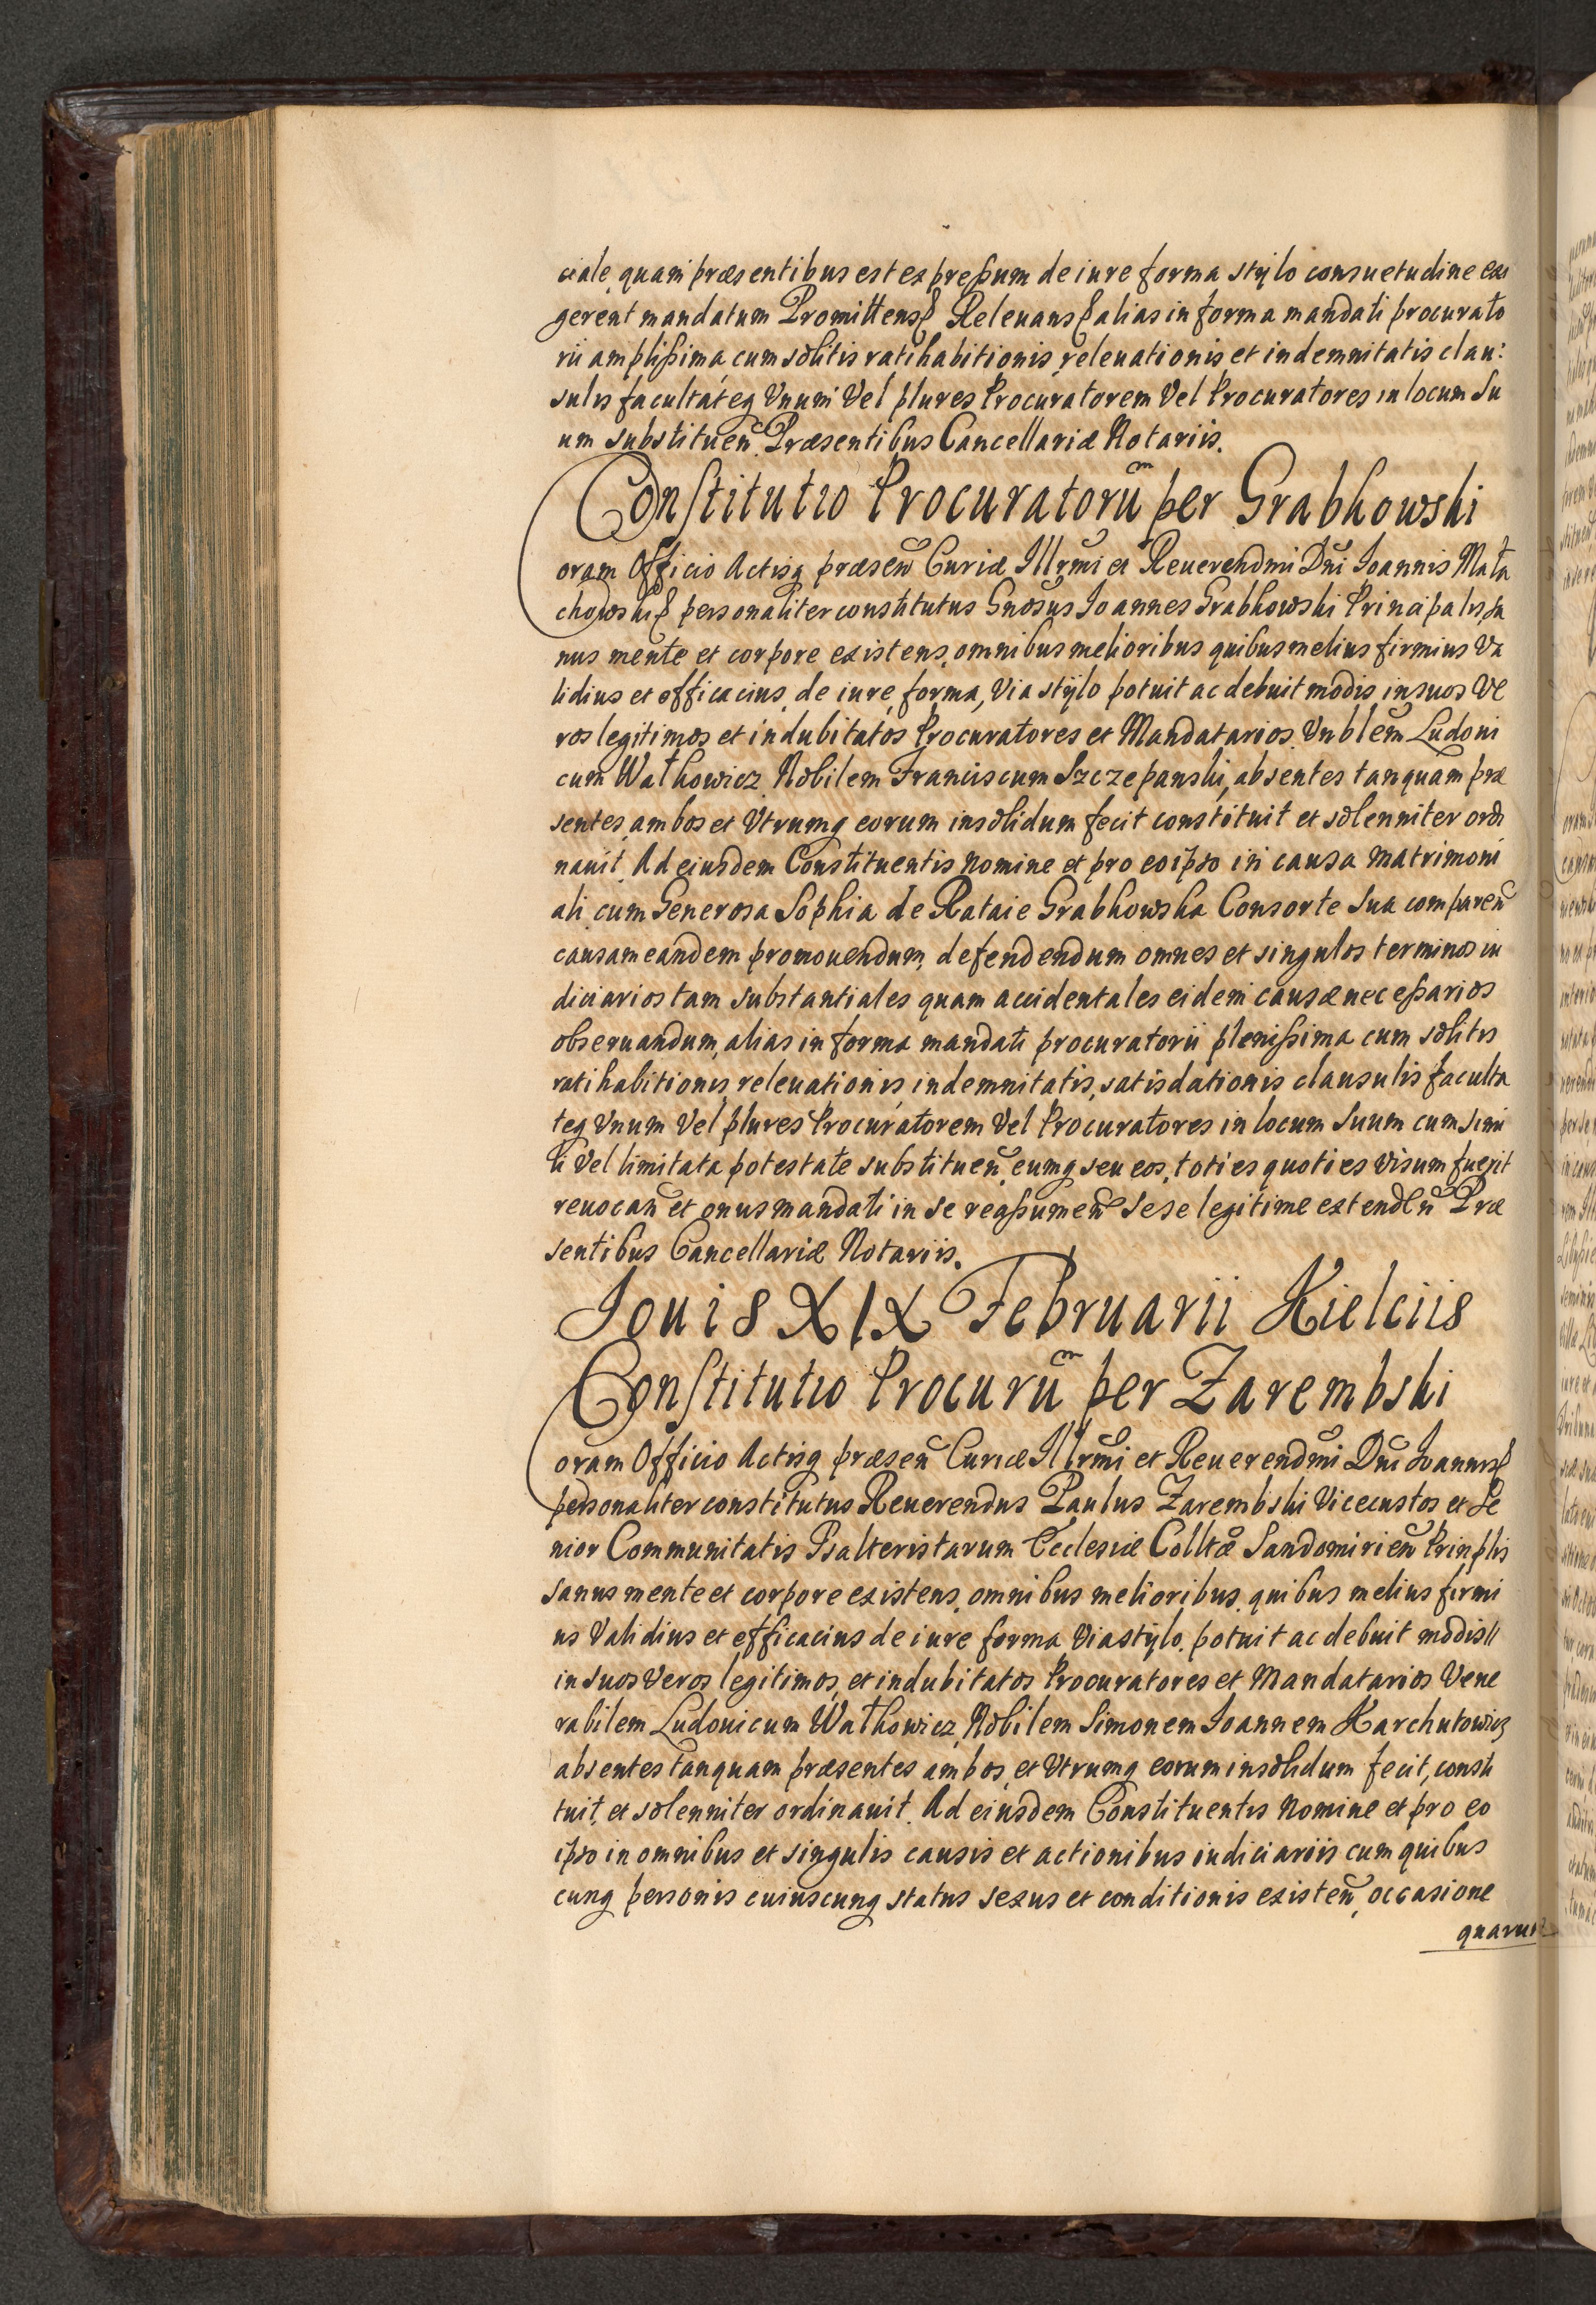 ciale, quam præsentibus est expreßum de iure forma stylo consuetudine exi
gerent mandatum Promittens& Releuans& alias in forma mandati procurato
rii amplißima cum solitis ratihabitionis releuationis et indemnitatis clau:
sulis facultateq Vnum Vel plures Procuratorem Vel Procuratores in locum Su
um substituen̄. Præsentibus Cancellariæ Notariis.
Constitutio Procuratorūm per Grabkowski
oram Officio Actisq præsen̄ Curiæ Illrmi et Reuerendmi Dni Ioannis Mała
chowski& personaliter constitutus Gnosus Ioannes Grabkowski Principalis, sa
nus mente et corpore existens, omnibus melioribus quibus melius firmius Va
lidius et efficacius, de iure, forma, Via stylo potuit ac debuit modis, in suos Ve
ros legitimos et indubitatos Procuratores et Mandatarios Vnblem Ludoui
cum Wałkowicz, Nobilem Franciscum Szczepanski, absentes tanquam præ
sentes, ambos et Vtrumq eorum insolidum fecit constituit et solenniter ordi
nauit. Ad eiusdem Constituentis nomine et pro eo ipso in causa matrimoni
ali cum Generosa Sophia de Rataie Grabkowska Consorte Sua comparen̄
causam eandem promouendum, defendendum omnes et singulos terminos iu
diciarios tam substantiales quam accidentales eidem causæ neceßarios
obseruandum, alias in forma mandati procuratorii plenißima cum solitis
ratihabitionis, releuationis indemnitatis, satisdationis clausulis faculta
teq Vnum Vel plures Procuratorem Vel Procuratores in locum Suum cum simi
li Vel limitata potestate substituen̄, eumq seu eos, toties quoties Visum fuerit
reuocan̄ et onus mandati in se reaßumen̄ Sese legitime extenden̄ Præ
sentibus Cancellariæ Notariis.
Iouis XIX Februarii Kielciis
Constitutio Procurūm per Zarembski
oram Officio Actisq præsen̄ Curiæ Illrmi et Reuerendmi Dni Ioannis&
personaliter constitutus Reuerendus Paulus Zarembski Vicecustos et Se
nior Communitatis Psalteristarum Ecclesiæ Colltæ Sandomirien̄ Prinplis
sanus mente et corpore existens, omnibus melioribus, quibus melius firmi
us Validius et efficacius de iure forma Via stylo, potuit ac debuit modis
in suos Veros legitimos, et indubitatos Procuratores et Mandatarios Vene
rabilem Ludouicum Wałkowicz, Nobilem Simonem Ioannem Karchutowicz
absentes tanquam præsentes ambos, et Vtrumq eorum insolidum fecit, consti
tuit, et solenniter ordinauit. Ad eiusdem Constituentis Nomine et pro eo
ipso in omnibus et singulis causis et actionibus iudiciariis cum quibus
cunq personis cuiuscunq status sexus et conditionis existen̄, occasione
quarum